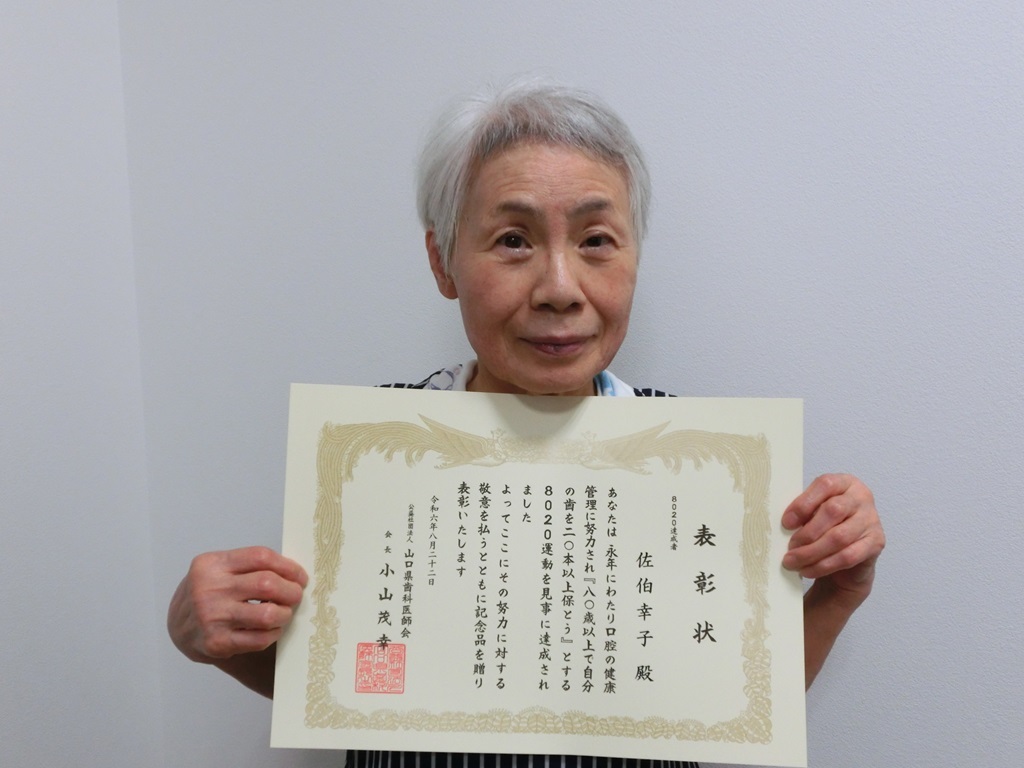 表彰状
8020達成者
佐伯幸子 殿
あなたは永年にわたり口腔の健康
管理に努力され『八〇歳以上で自分
の歯を二〇本以上保とう』とする
8020運動を見事に達成され
ました
よってここにその努力に対する
敬意を払うとともに記念品を贈り
表彰いたします
令和六年八月二十二日
公益社団法人 山口県歯科医師会
会長 小山茂幸